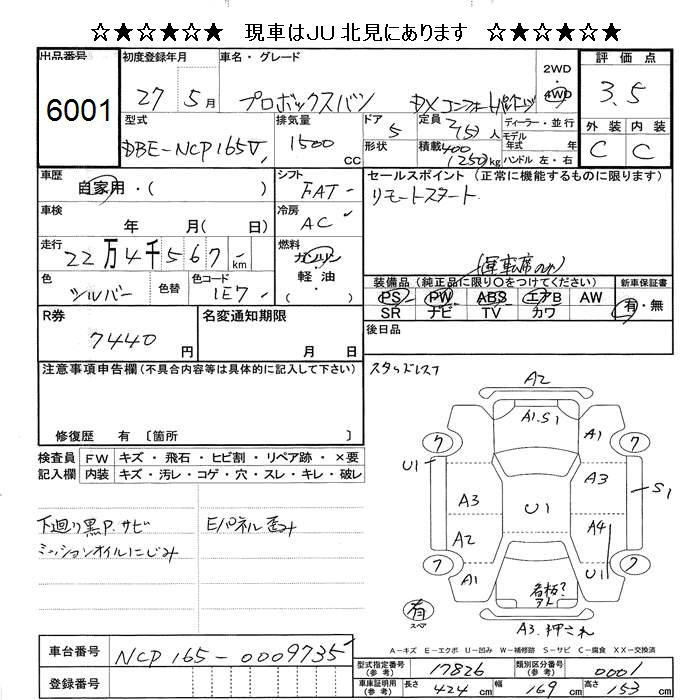 ☆★☆★☆★ 現車はJU 北見にあります ☆★☆★☆★
出品番号 初度登録年月 車名・グレード 2WD ・ 4WD 評価点
6001 27年5月 プロボックスバン DXコンフォート 3.5
型式 排気量 ドア 定員 ディーラー・並行 外装 内装
DBE-NCP165V 1500cc 5 2(5)人 モデル年式 年 C C
形状 積載 400(250)kg ハンドル 左・右
車歴 シフト セールスポイント (正常に機能するものに限ります)
自家用・( ) FAT リモートスタート
車検 冷房
年 月( 日) AC
走行 燃料
22万4千567km ガソリン・軽油・( ) (運転席のみ)
色 色替 色コード 装備品(純正品に限り○をつけてください) 新車保証書
シルバー 1E7 PS PW ABS エアB AW 有・無
SR ナビ TV カワ
R券 名変通知期限 後日品
7440円 月 日
注意事項申告欄(不具合内容等は具体的に記入して下さい) スタッドレス
修復歴 有 〔箇所 〕
検査員記入欄 FW キズ・飛石・ヒビ割・リペア跡・×要
内装 キズ・汚レ・コゲ・穴・スレ・キレ・破レ
下廻り黒P.サビ Eパネル歪み
ミッションオイルにじみ
A2
A1.S1
A1
7
7
U1
A3
A3
S1
U1
A2
A4
7
7
A1
U1
名板?アト
有
スペア
A3.押され
A-キズ E-エクボ U-凹み W-補修跡 S-サビ C-腐食 XX-交換済
車台番号 NCP165-0009735
型式指定番号(参考) 17826 類別区分番号(参考) 0001
登録番号
車庫証明用(参考) 長さ 424cm 幅 169cm 高さ 153cm